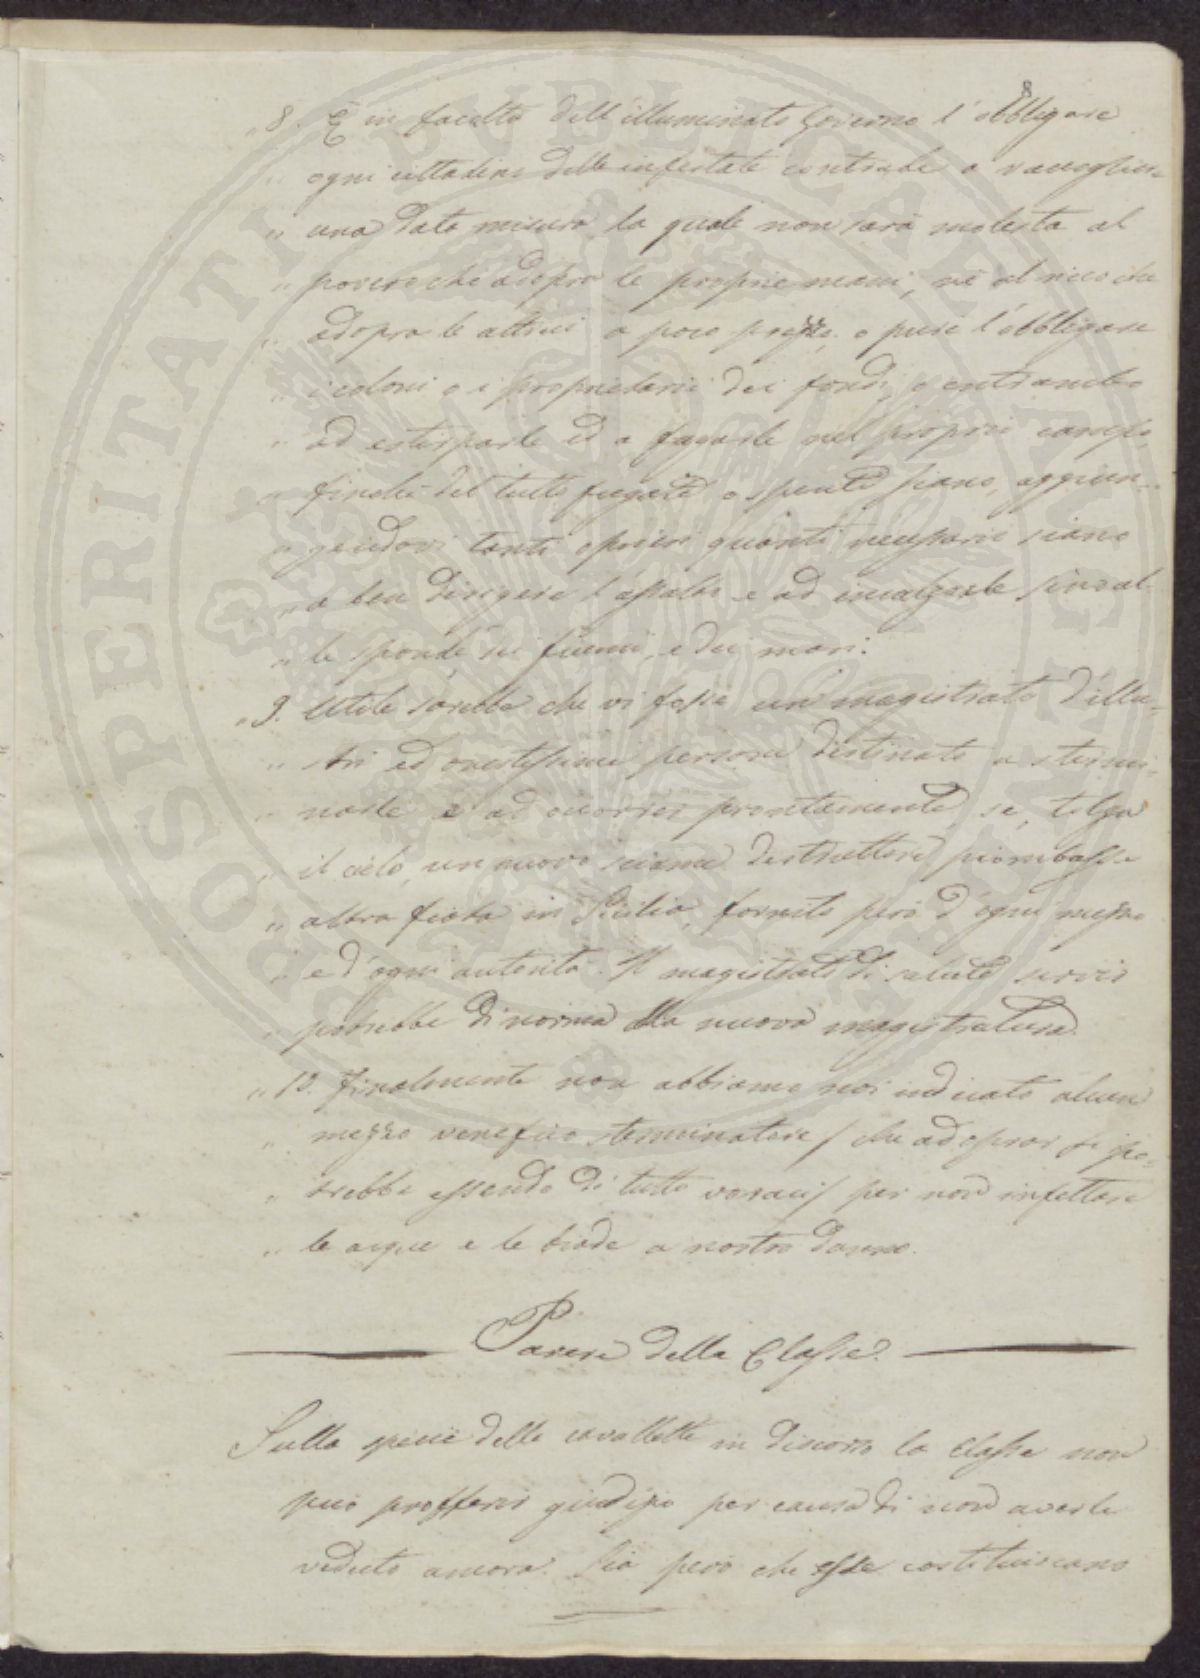 8
„ 8. È in facoltà dell'illuminato Governo l'obbligare
„ ogni cittadino delle infestate contrade a raccoglierne
„ una data misura, la quale non sarà molesta al
„ povero che adopra le proprie mani, nè al ricco che
„ adopra le altrui a poco prezzo, o pure l'obbligare
„ i coloni o i proprietarii dei fondi, o entrambo
„ ad estirparle ed a fugarle nel proprio campo,
„ finchè del tutto fugate o spente siano, aggiun-
„ gendovi tanti operieri quanti necessarii siano
„ a ben dirigere l'assalto e ad incalzarle sino al-
„ le sponde dei fiumi, e dei mari.
„ 9. Utile sarebbe che vi fosse un magistrato d'illu-
„ stri ed onestissime persone destinato a stermi-
„ narle e ad accorrer prontamente, se, tolga
„ il cielo, un nuovo sciame distruttore piombasse
„ altra fiata in Sicilia, fornito però d'ogni mezzo
„ e d'ogni autorità. Il magistrato di salute servir
„ potrebbe di norma alla nuova magistratura.
„ 10. Finalmente non abbiamo noi indicato alcun
„ mezzo venefico sterminatore / che adoprar si po-
„ trebbe essendo di tutto voraci / per non infettare
„ le acque e le biade a nostro danno.
Parere della Classe.
Sulla specie delle cavallette in discorso la Classe non
può profferir giudizio per causa di non averle
vedute ancora. Sia però che esse costituiscano
SPERITATI PUBLICAE